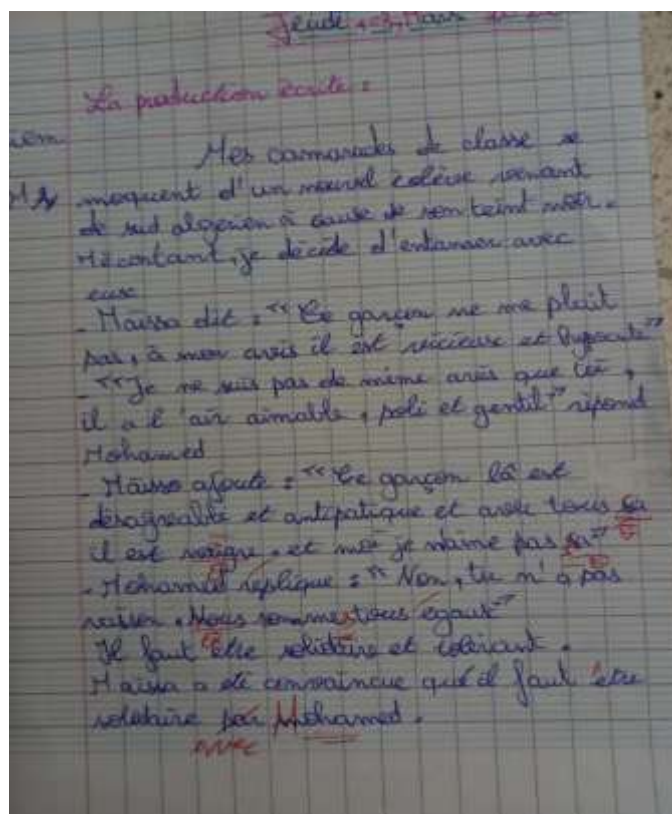 Mars
La production écrite :
Mes camarades de classe se
moquent d'un nouvel élève venant
de sud algerien à cause de son teint noir.
Mécontant, je décide d'entamer avec
eux
- Maissa dit : "Ce garçon ne me plait
pas, à mon avis il est vicieuse et hypocrite"
- "Je ne suis pas de même avis que toi,
il a l'air aimable, poli et gentil" répond
Mohamed
- Maissa ajoute : "Ce garçon là est
désagreable et antipatique et avec tous sa
il est et moi je n'aime pas sa"
- Mohamed réplique : "Non, tu n'a pas
raison. Nous sommes tous egaux"
Il faut être solidaire et tolérant.
Maissa a été convaincue qu'il faut être
solidaire par Mohamed.
avec